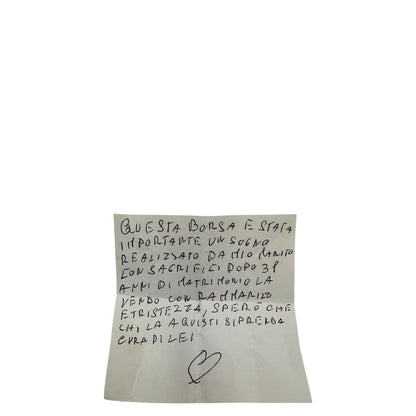 QUESTA BORSA È STATA
IMPORTANTE UN SOGNO
REALIZZATO DA MIO MARITO
CON SACRIFICI DOPO 31
ANNI DI MATRIMONIO LA
VENDO CON RAMMARICO
E TRISTEZZA, SPERO CHE
CHI LA AQUISTI SI PRENDA
CURA DI LEI